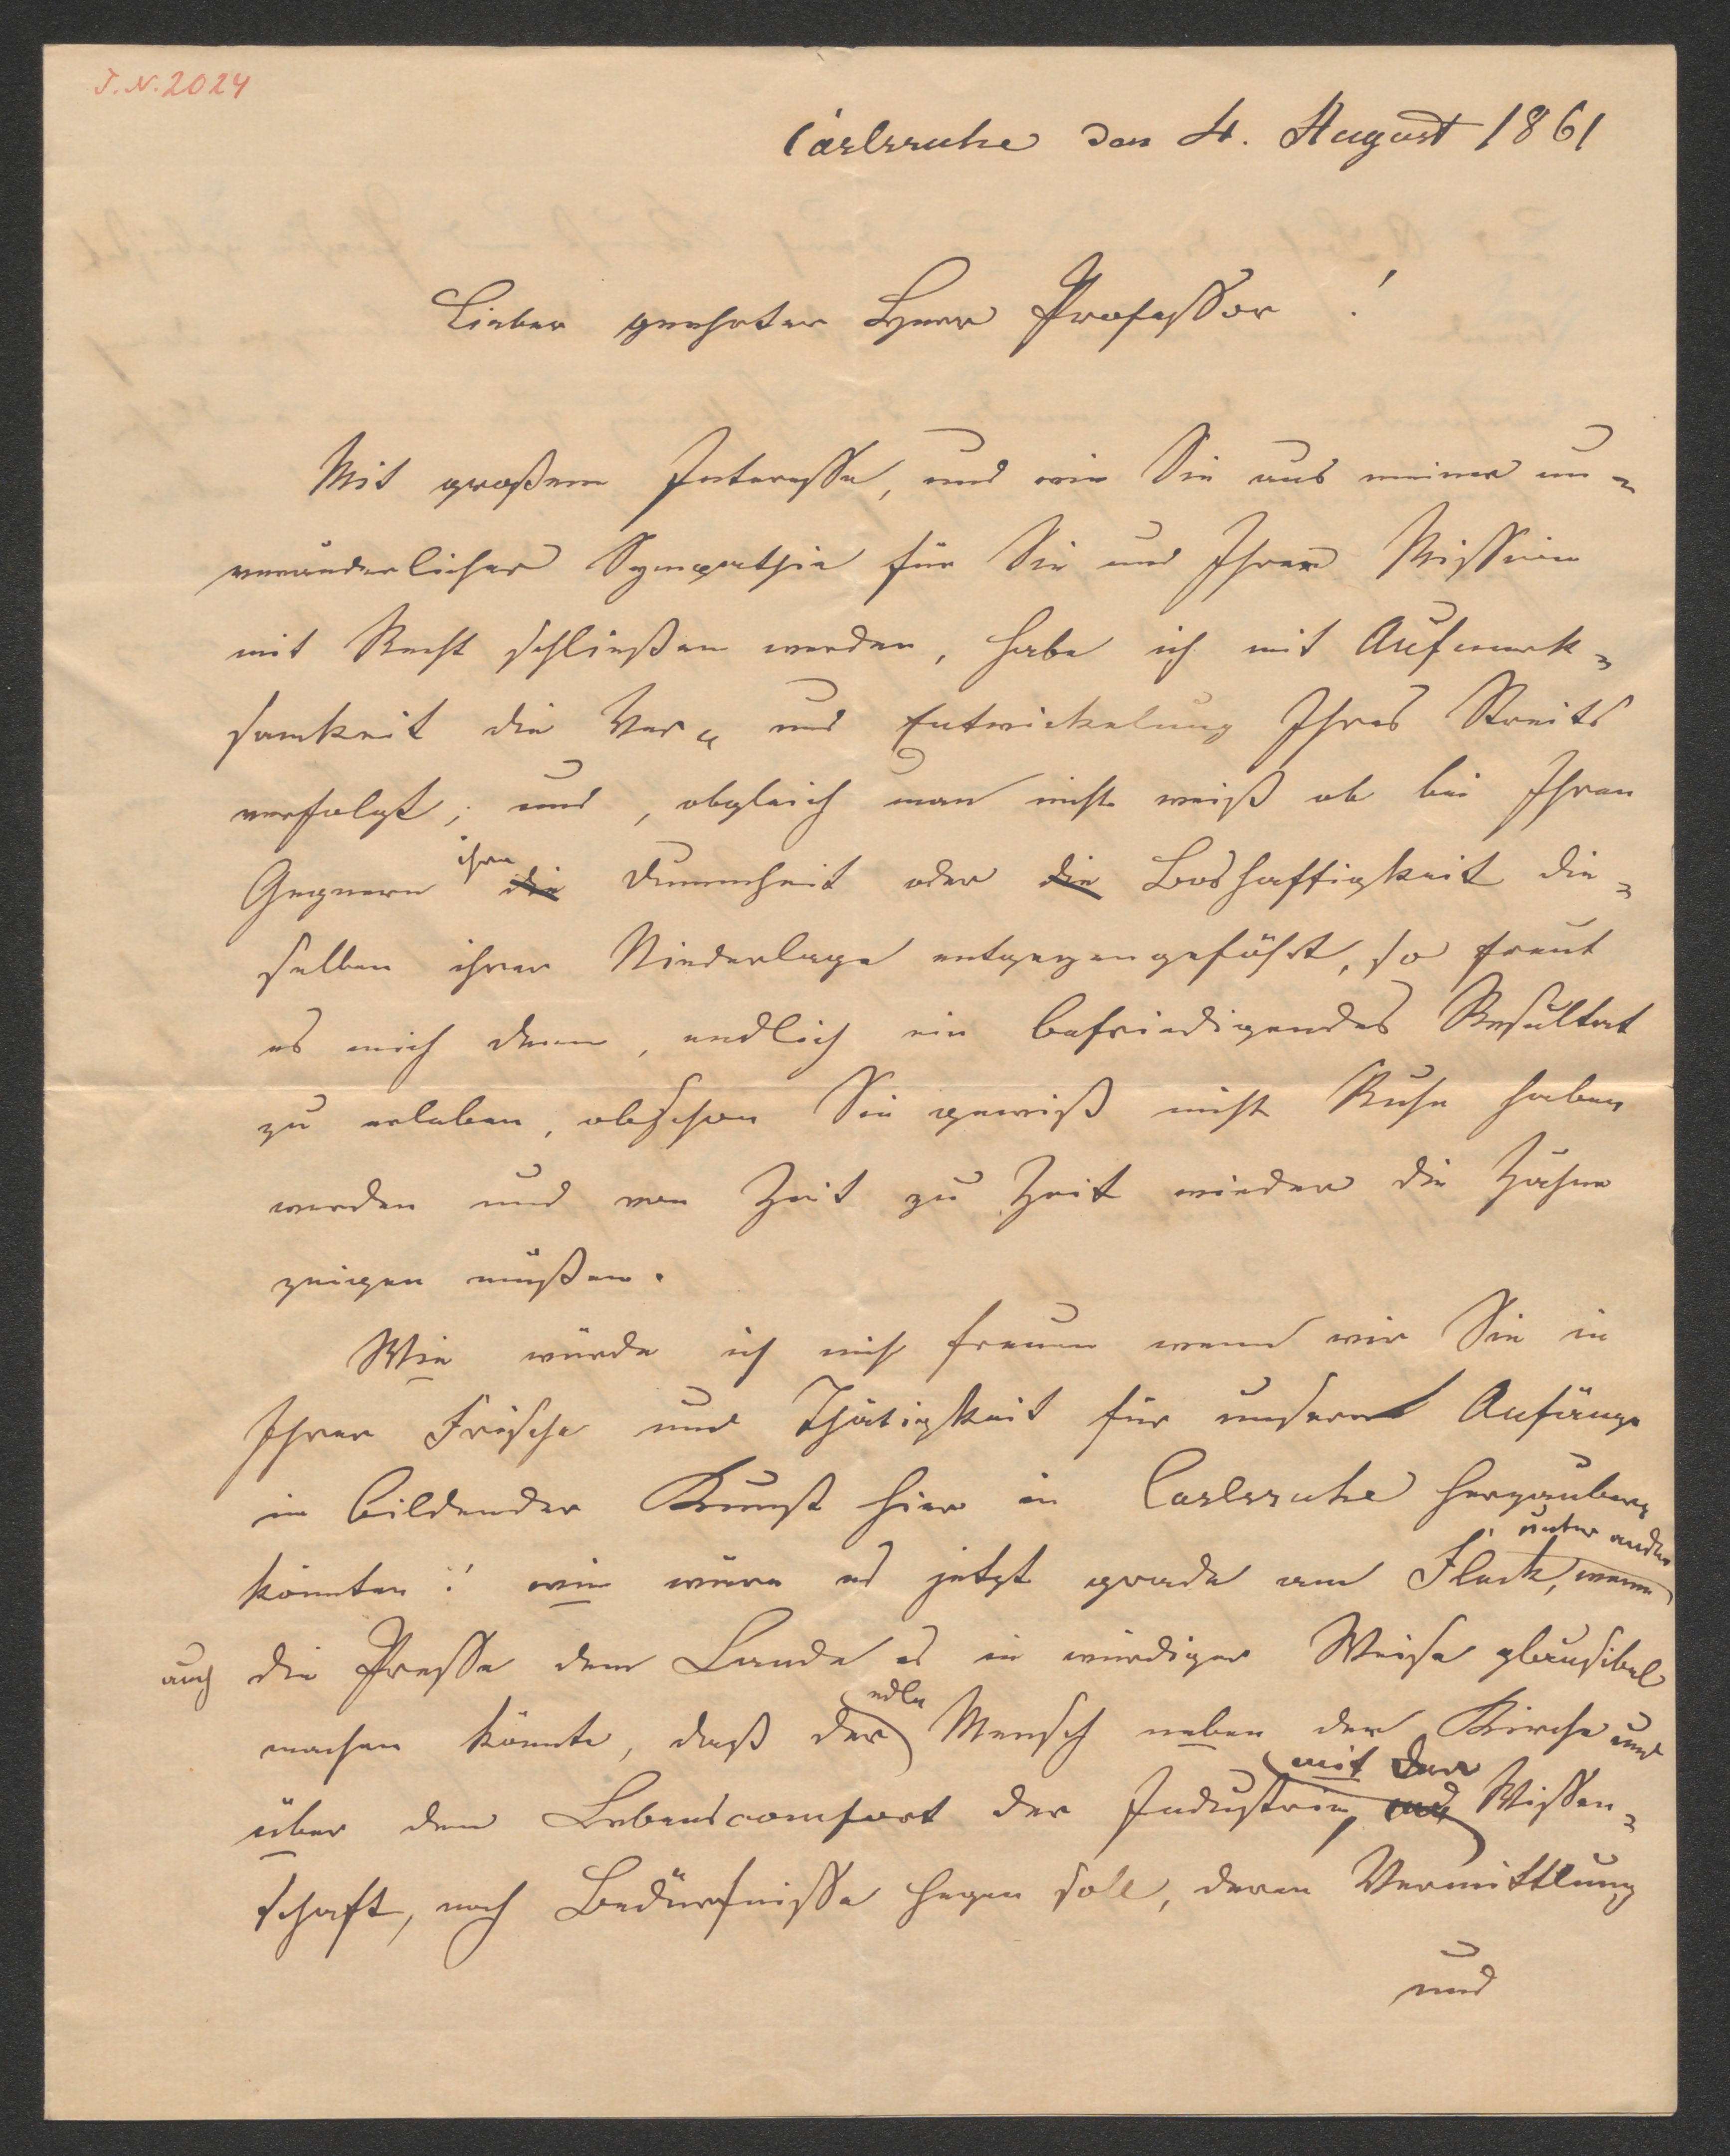 J.N. 2024
Carlsruhe den 4. August 1861
Lieber geehrter Herr Professor!
Mit großem Interesse, und wie Sie aus meiner un-
veränderlicher Sympathie für Sie und Ihrer Mission
mit Recht schließen werden, habe ich mit Aufmerk-
samkeit die Ver- und Entwickelung Ihres Streits
verfolgt; und, obgleich man nicht weiß ob bei Ihren
Gegnern ihre die Dummheit oder die Boshaftigkeit die-
selben ihrer Niederlage entgegengeführt, so freut
es mich denn, endlich ein befriedigendes Resultat
zu erleben, obschon Sie gewiß nicht Ruhe haben
werden und von Zeit zu Zeit wieder die Zähne
zeigen müßen.
Wie würde ich mich freuen wenn wir Sie in
Ihrer Frische und Thätigkeit für unsere Anfänge
in bildender Kunst hier in Carlsruhe herzaubern
könnten! wie wäre es jetzt grade am Fleck, wenn unter ander
auch die Presse dem Lande es in würdiger Weise plausibel
machen könnte, daß der edle Mensch neben der Kirche und
über dem Lebenscomfort der Industrie, mit der Wissen-
schaft, noch Bedürfnisse hegen soll, deren Vermittlung
und